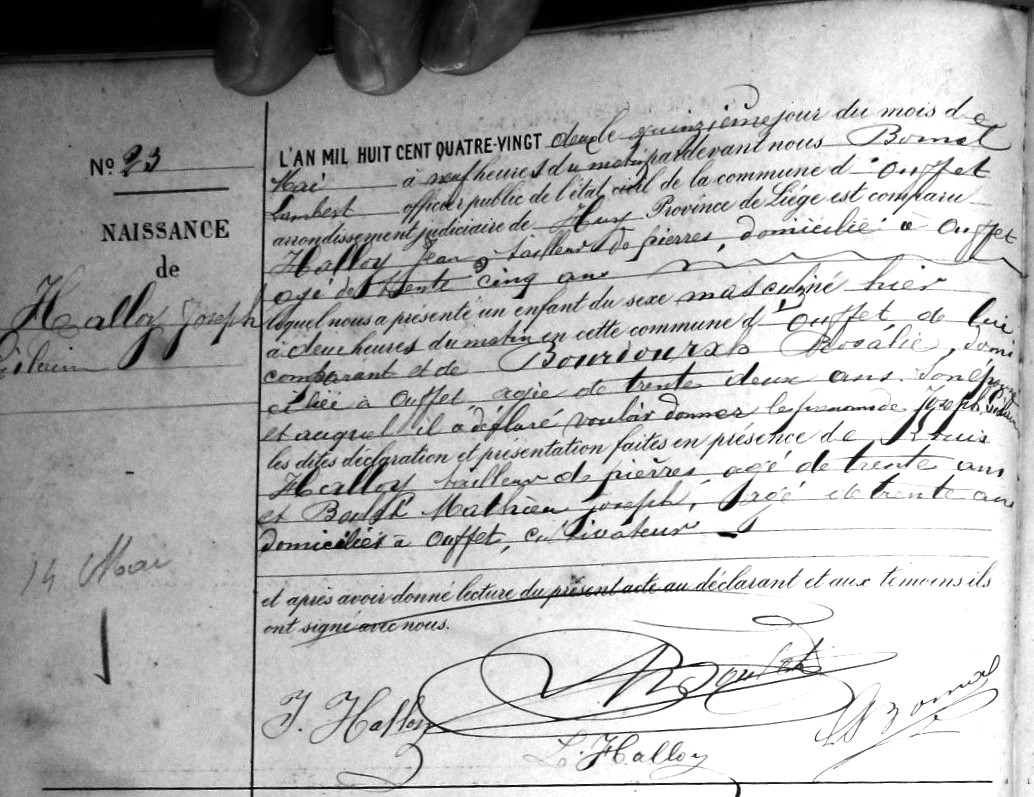 N° 23
NAISSANCE
de
Halloy Joseph
Ghilain
14 Mai
L'AN MIL HUIT CENT QUATRE-VINGT deux le quinzième jour du mois de
Mai à neuf heures du matin pardevant nous Bomal
Lambert officier public de l'état civil de la commune d'Ouffet
arrondissement judiciaire de Huy Province de Liége est comparu
Halloy Jean tailleur de pierres, domicilié à Ouffet
agé de trente cinq ans
lequel nous a présenté un enfant du sexe masculin né hier
à deux heures du matin en cette commune d'Ouffet de lui
comparant et de Rosalie, domi
ciliée à Ouffet agée de trente deux ans. Son épouse
et auquel il a déclaré vouloir donner les prénoms de Joseph
les dites déclaration et présentation faites en présence de Louis
Halloy tailleur de pierres agé de trente ans
et Mathieu Joseph, agé de trente ans
domiciliés à Ouffet, cultivateur
et après avoir donné lecture du présent acte au déclarant et aux témoins ils
ont signé avec nous.
J. Halloy
L. Halloy
L. Bomal